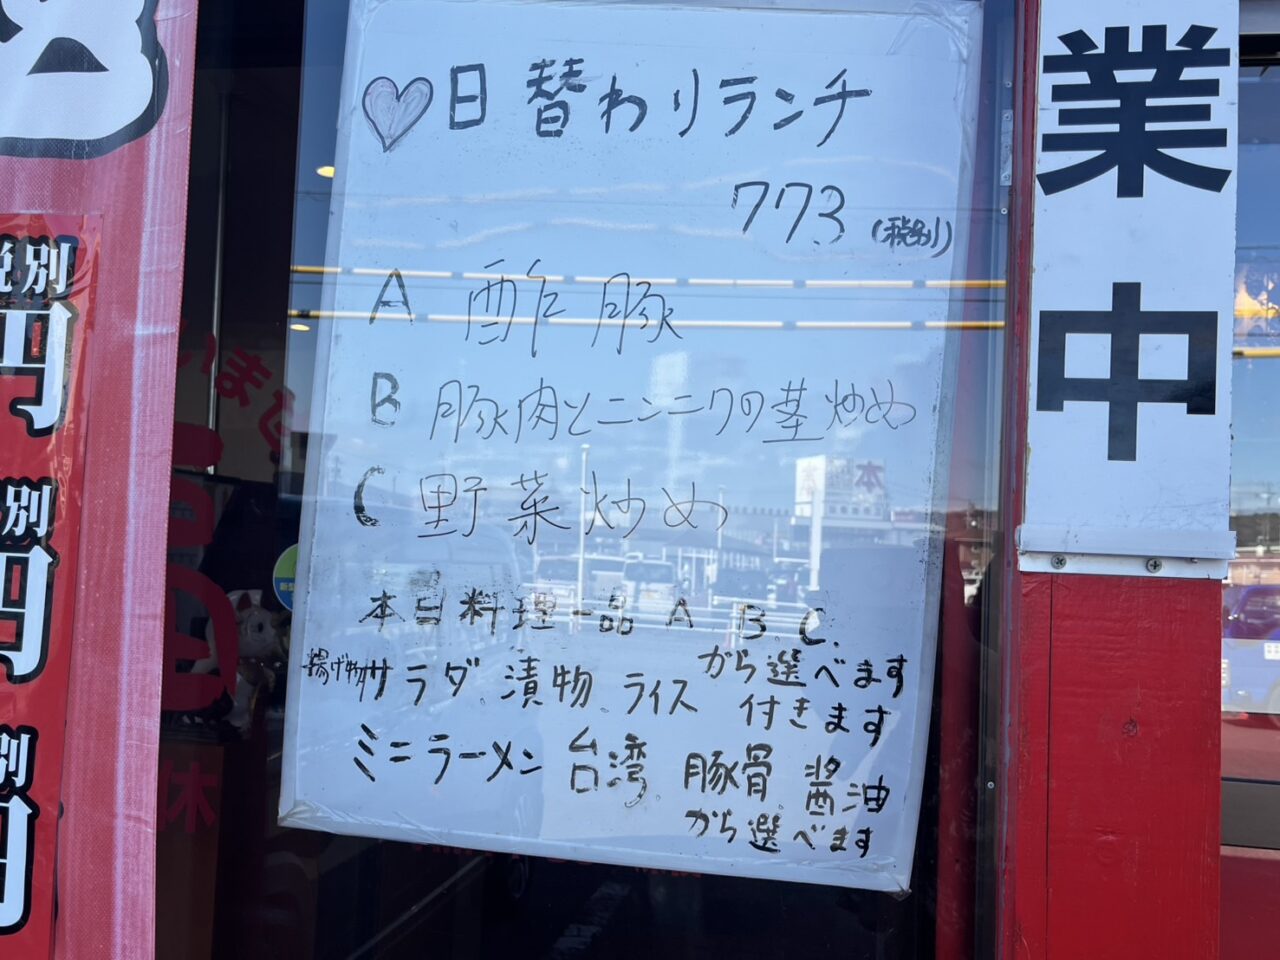 ♡日替わりランチ
773(税別)
A 酢豚
B 豚肉とニンニクの茎炒め
C 野菜炒め
本日料理一品 A B. C.
から選べます
揚げ物 サラダ. 漬物. ライス 付きます
ミニラーメン 台湾. 豚骨. 醤油
から選べます
業中
税別
円
別
円
別
円